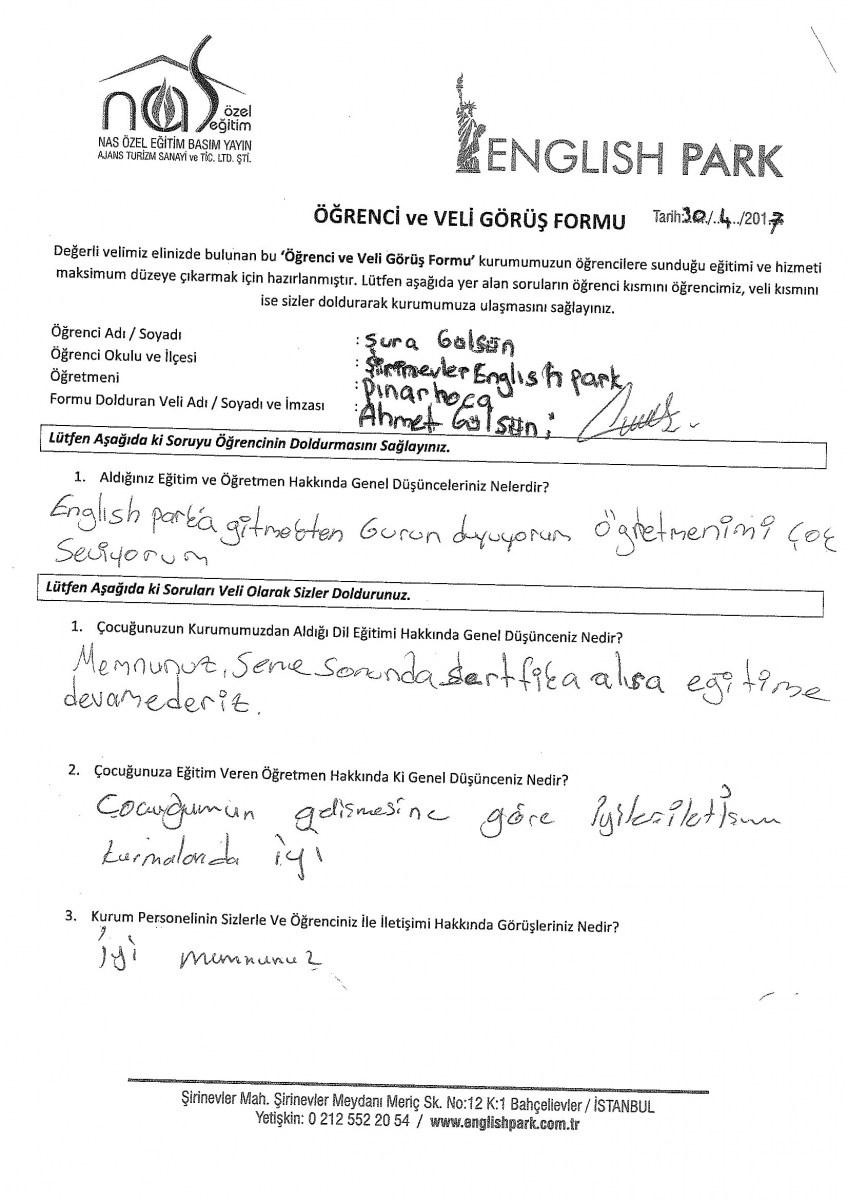 nas özel eğitim
NAS ÖZEL EĞİTİM BASIM YAYIN
AJANS TURİZM SANAYİ ve TİC. LTD. ŞTİ.
ENGLISH PARK
ÖĞRENCİ ve VELİ GÖRÜŞ FORMU Tarih:30./..4../2017
Değerli velimiz elinizde bulunan bu 'Öğrenci ve Veli Görüş Formu' kurumumuzun öğrencilere sunduğu eğitimi ve hizmeti
maksimum düzeye çıkarmak için hazırlanmıştır. Lütfen aşağıda yer alan soruların öğrenci kısmını öğrencimiz, veli kısmını
ise sizler doldurarak kurumumuza ulaşmasını sağlayınız.
Öğrenci Adı / Soyadı : Şura Gülsün
Öğrenci Okulu ve İlçesi : Şirinevler English park
Öğretmeni : Pınar hoca
Formu Dolduran Veli Adı / Soyadı ve İmzası : Ahmet Gülsün
Lütfen Aşağıda ki Soruyu Öğrencinin Doldurmasını Sağlayınız.
1. Aldığınız Eğitim ve Öğretmen Hakkında Genel Düşünceleriniz Nelerdir?
English park'a gitmekten Gurun duyuyorum Öğretmenimi çok
Seviyorum
Lütfen Aşağıda ki Soruları Veli Olarak Sizler Doldurunuz.
1. Çocuğunuzun Kurumumuzdan Aldığı Dil Eğitimi Hakkında Genel Düşünceniz Nedir?
Memnunuz, Sene sonunda sertfika alırsa eğitime
devamederiz.
2. Çocuğunuza Eğitim Veren Öğretmen Hakkında Ki Genel Düşünceniz Nedir?
Çocuğumun gelişmesine göre
kurmalarıda iyi
3. Kurum Personelinin Sizlerle Ve Öğrenciniz İle İletişimi Hakkında Görüşleriniz Nedir?
iyi memnunuz
Şirinevler Mah. Şirinevler Meydanı Meriç Sk. No:12 K:1 Bahçelievler / İSTANBUL
Yetişkin: 0 212 552 20 54 / www.englishpark.com.tr